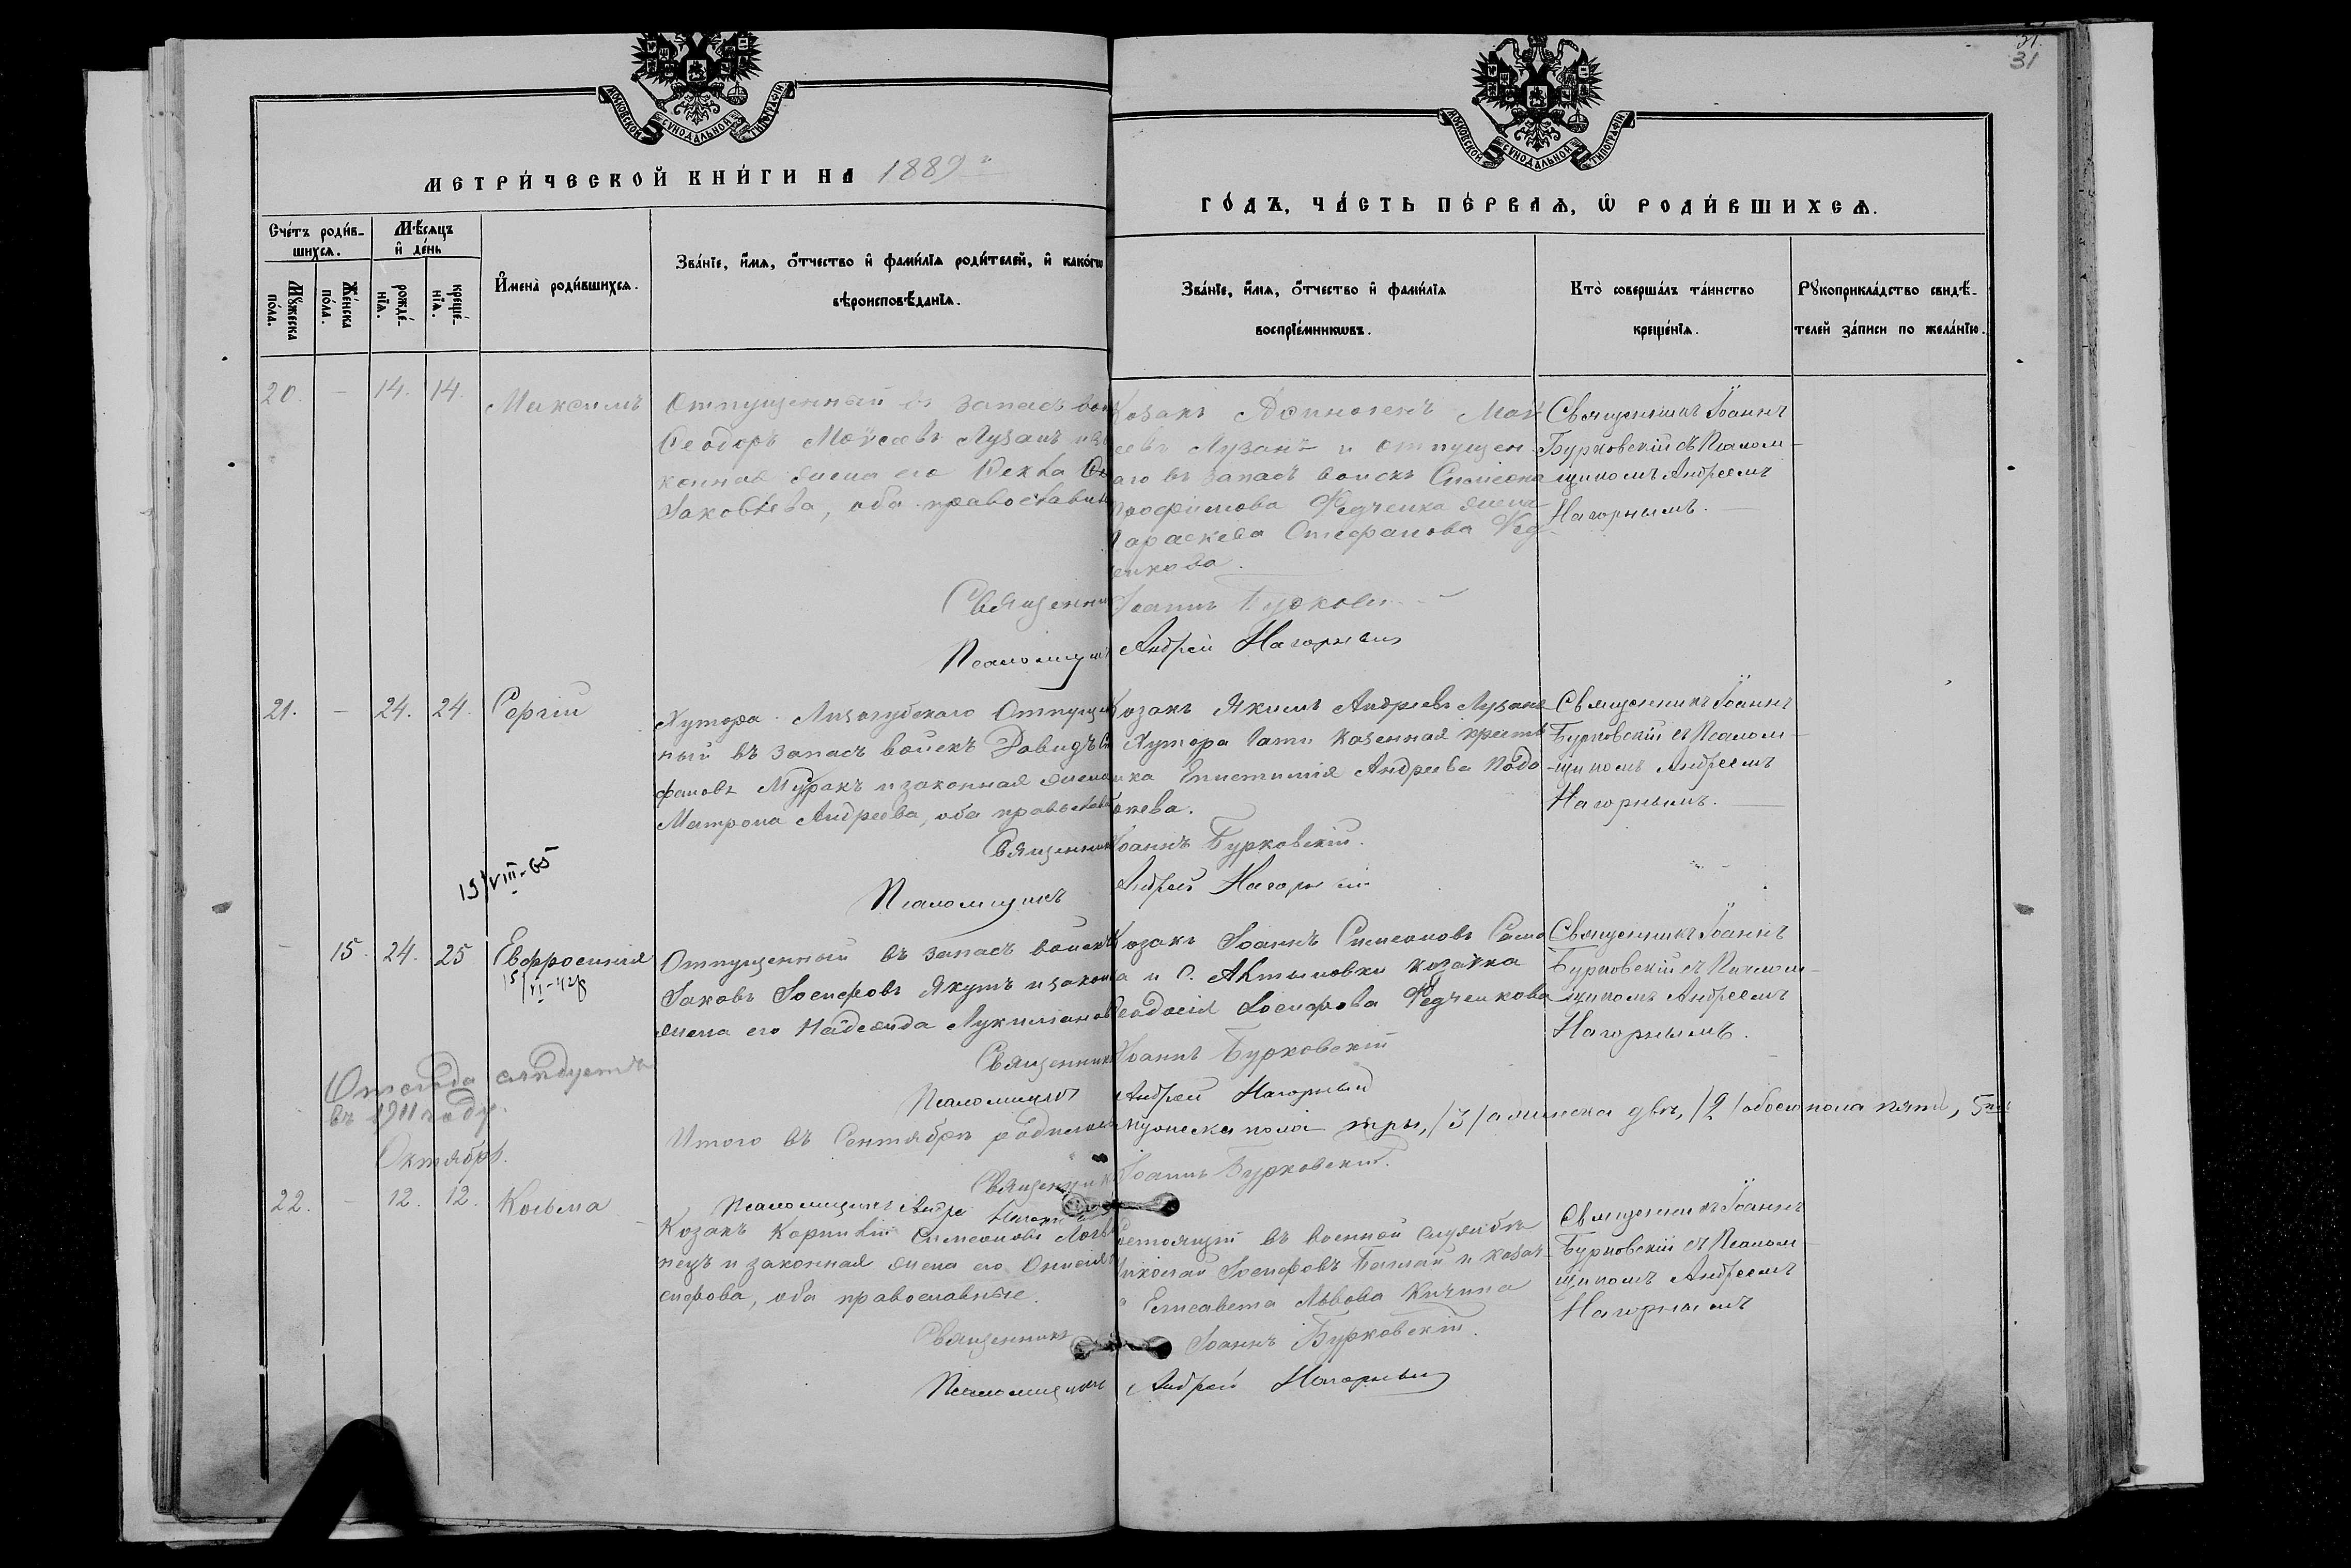 31.
31
МОСКОВСКОЙ СѴНОДАЛЬНОЙ ТИПОГРАФІИ
МОСКОВСКОЙ СѴНОДАЛЬНОЙ ТИПОГРАФІИ
МЕТРИ́ЧЕСКОЙ КНИ́ГИ НА 1889 й
ГО́ДЪ, ЧА́СТЬ ПЕ́РВАѦ, Ѡ РОДИ́ВШИХСѦ.
Сче́тъ роди́в-
шихсѧ.
Мѣ́сѧцъ
и҆ де́нь
Мꙋ́жеска
по́ла.
Же́нска
по́ла.
рожде́-
нїѧ.
креще́-
нїѧ.
И҆мена̀ роди́вшихсѧ.
Зва́нїе, и҆́мѧ, ѻ҆́тчество и҆ фами́лїѧ роди́телей, и҆ како́гѡ
вѣроисповѣ́данїѧ.
Зва́нїе, и҆́мѧ, ѻ҆́тчество и҆ фами́лїѧ
воспрїе́мникѡвъ.
Кто̀ соверша́лъ та́инство
креще́нїѧ.
Рꙋкоприкла́дство свидѣ́-
телей за́писи по жела́нїю.
20. — 14. 14. Максимъ
Отпущенный въ запасъ вой
Ѳеодоръ Моѵсеевъ Лузанъ и за
конная жена его Ѳекла
Іаковлева, оба православн
Козакъ Моѵ
сеевъ Лузанъ и отпущен
аго въ запасъ войскъ Симеона
Трофимова Ѳедченка жена
Параскева Стефанова Ѳед
енкова.
Священникъ Іоаннъ
Бурковскій съ Псалом-
щикомъ Андреемъ
Нагорнымъ.
Священни Іоаннъ Бурковс
Псаломщикъ Андрей Нагорный
21. — 24. 24. Сергій
Хутора Лизогубскаго Отпущен
ный въ запасъ войскъ Давидъ
фановъ Муракъ и законная жена
Матрона Андреева, оба православ
Козакъ Якимъ Андреевъ Лузанъ
Хутора Гати казенная кресть
ка Епистимія Андреева Подо
Священникъ Іоаннъ
Бурковскій съ Псалом-
щикомъ Андреемъ
Нагорнымъ.
Священникъ Іоаннъ Бурковскій.
Псаломщикъ Андрей Нагорный
15/VIII-65
— 15. 24. 25 Евфросинія
15/VI-42
Отпущенный въ запасъ войскъ
Іаковъ Іосифовъ Якутъ и закон
жена его Надежда Лукиланов
Козакъ Іоаннъ Симеоновъ Само
а и С. Актыновки козачка
Ѳеодосія Іосифова Ѳедченкова
Священникъ Іоаннъ
Бурковскій съ Псалом-
щикомъ Андреемъ
Нагорнымъ.
Священникъ Іоаннъ Бурковскій
Псаломщикъ Андрей Нагорный
Отсюда следуетъ
въ 1911 году.
Итого въ Сентябрѣ родилось мужеска пола три, /3/ а женска двѣ, /2/ обоего пола пять, 5.
Священникъ Іоаннъ Бурковскій.
Псаломщикъ Андре Нагорный
Октябрь.
22. — 12. 12. Козьма
Козакъ Корнилій Симеоновъ Логв
нецъ и законная жена его Онисія
сифова, оба православные.
Состоящій въ военной службѣ
Николай Іосифовъ Баглай и козач
а Елисавета Львова Кичина
Священникъ Іоаннъ
Бурковскій съ Псалом-
щикомъ Андреемъ
Нагорнымъ
Священникъ Іоаннъ Бурковскій.
Псаломщикъ Андрей Нагорный